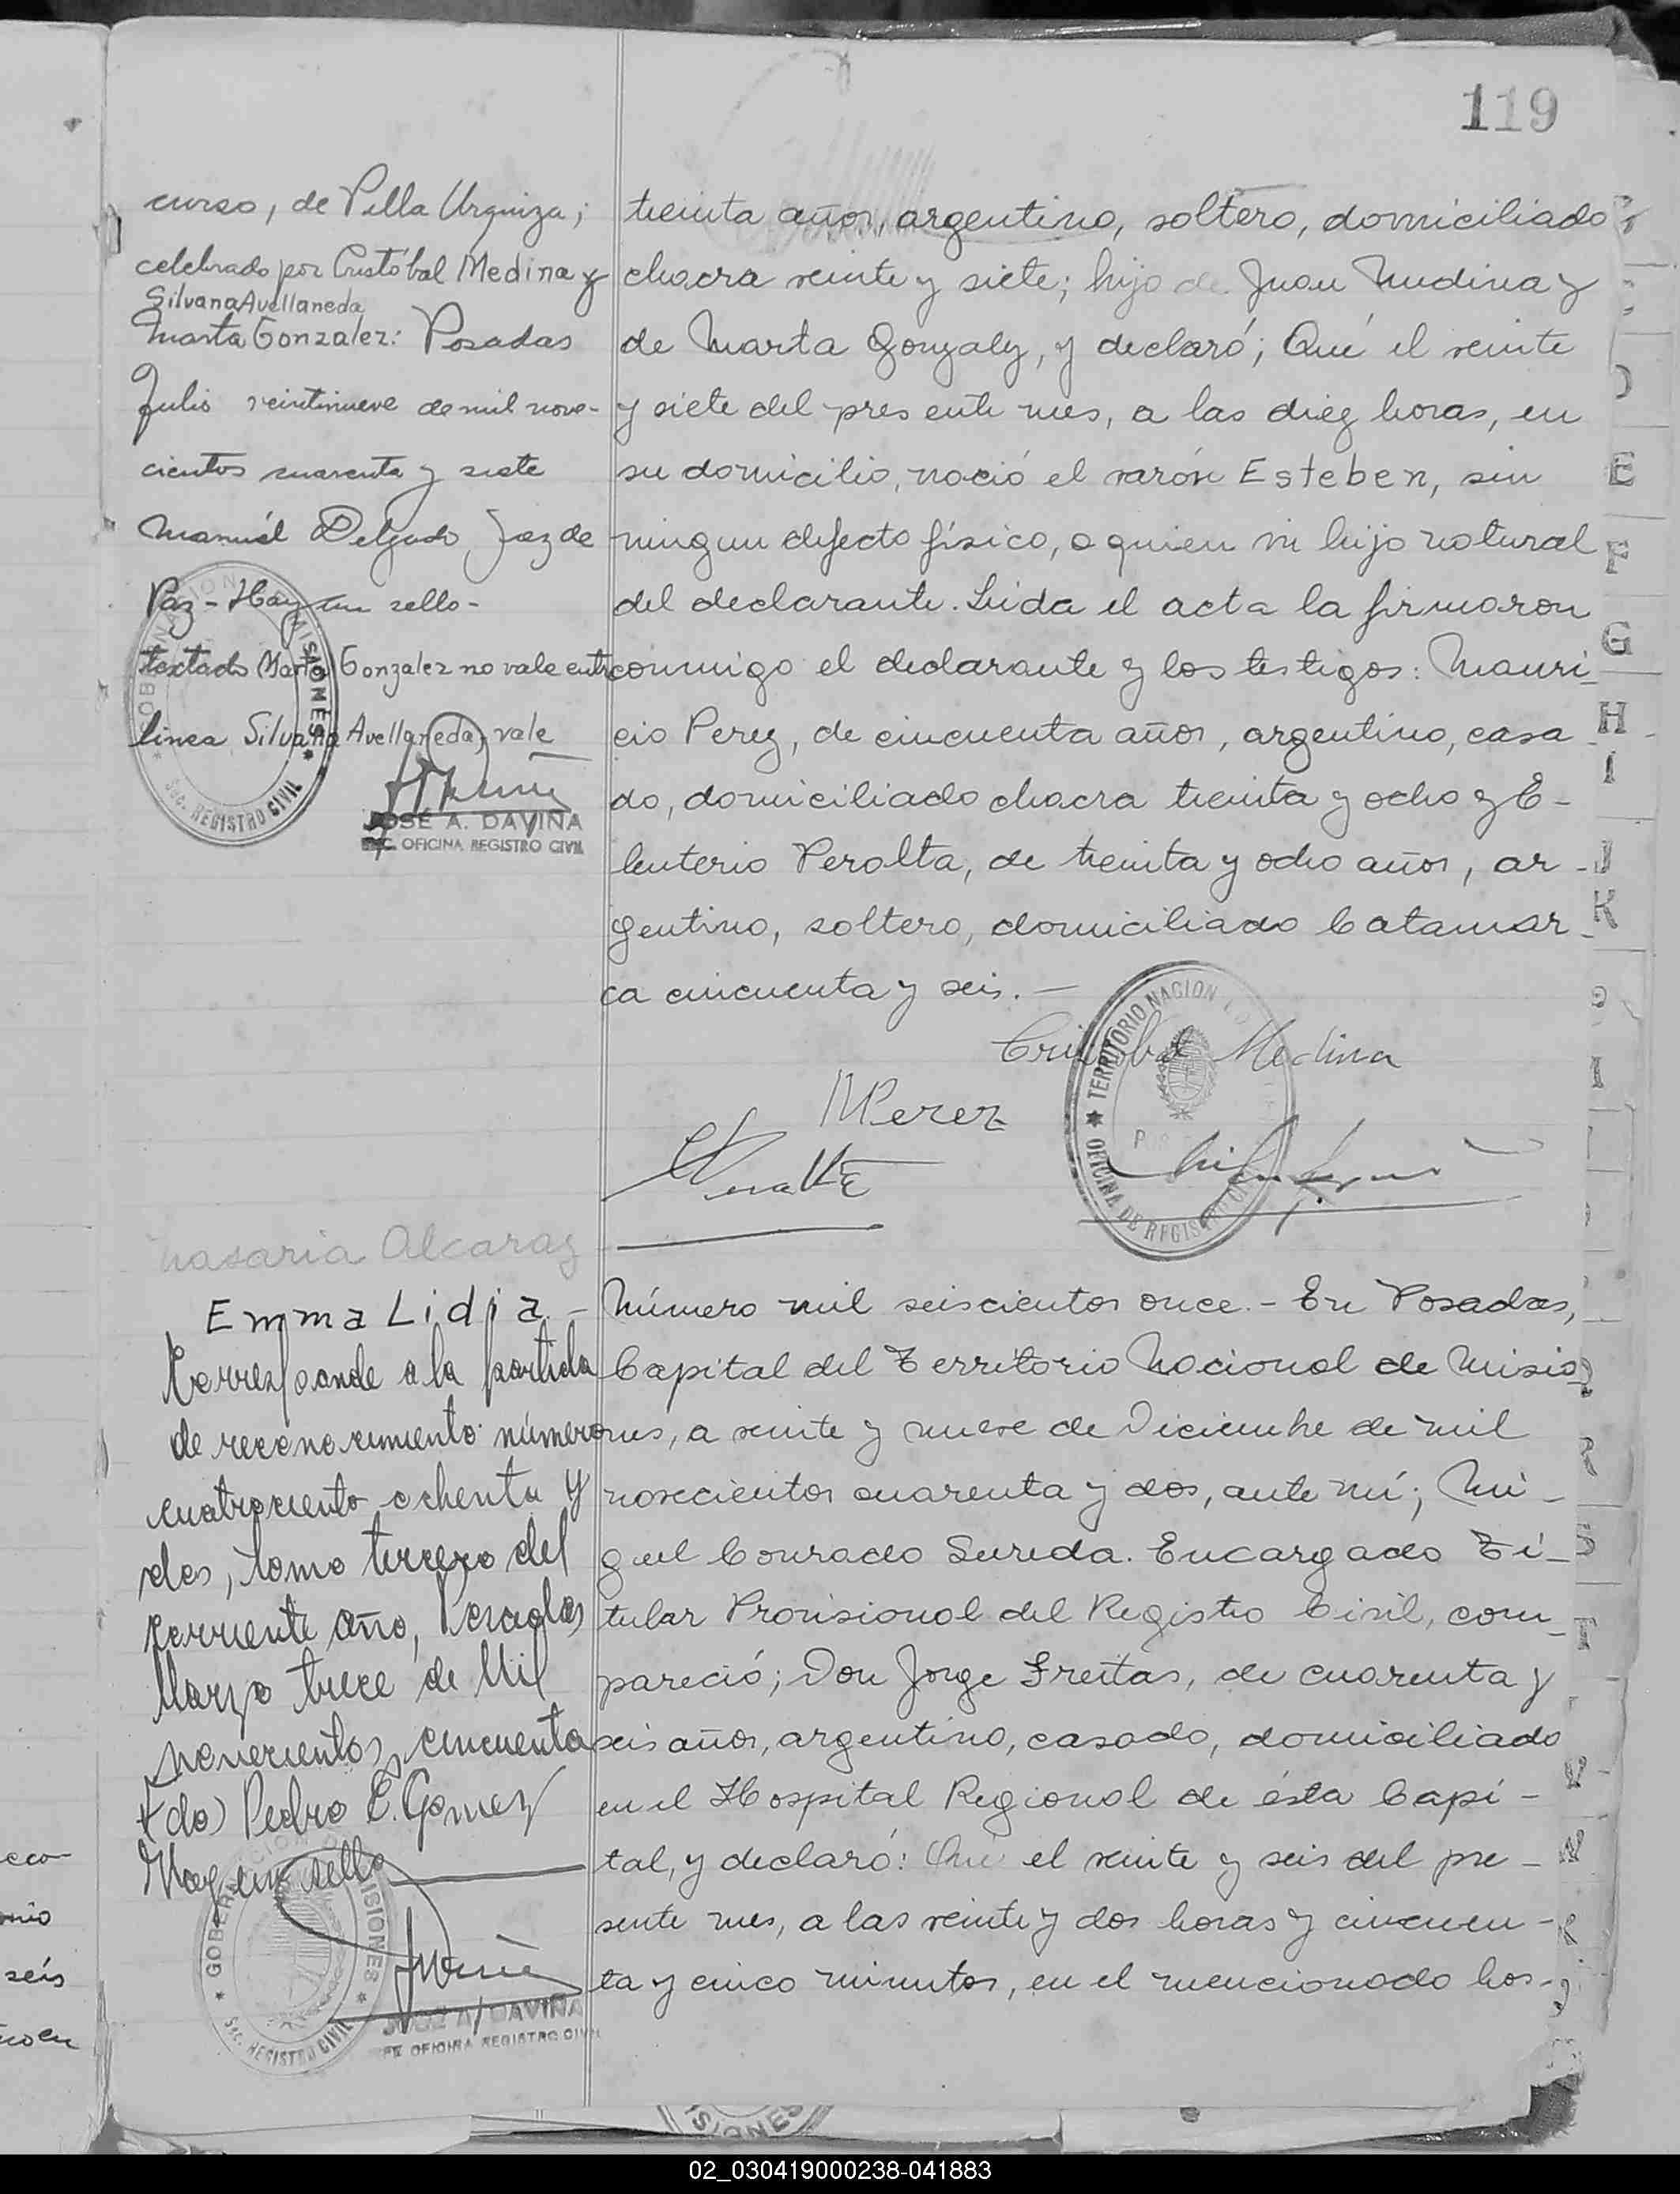 119
curso, de Villa Urquiza;
celebrado por Cristóbal Medina y
Silvana Avellaneda
Marta Gonzalez: Posadas
Julio veintinueve de mil nove-
cientos cuarenta y siete
Manuel Delgado, Juez de
Paz - Hay un sello -
testado Marta Gonzalez no vale entre
linea Silvana Avellaneda, vale
JOSÉ A. DAVIÑA
ENC. OFICINA REGISTRO CIVIL
GOBERNACION MISIONES
Sec. REGISTRO CIVIL
treinta años, argentino, soltero, domiciliado
chacra veinte y siete; hijo de Juan Medina y
de Marta Gonzalez, y declaró; Qué el veinte
y siete del presente mes, a las diez horas, en
su domicilio, nació el varón Esteben, sin
ningun defecto físico, a quien vi hijo natural
del declarante. Leida el acta la firmaron
conmigo el declarante y los testigos: Mauri-
cio Perez, de cincuenta años, argentino, casa-
do, domiciliado chacra treinta y ocho y E-
leuterio Peralta, de treinta y ocho años, ar-
gentino, soltero, domiciliado Catamar-
ca cincuenta y seis. -
Cristobal Medina
MPerez
TERRITORIO NACIONAL
OFICINA DE REGISTRO
Nasaria Alcaraz
Emma Lidia -
Corresponde a la partida
de reconocimiento número
cuatrociento ochenta y
dos, tomo tercero del
corriente año, Posadas
Marzo trece de Mil
novecientos cincuenta
(fdo) Pedro E. Gomez
Hay un sello
GOBERNACION MISIONES
Sec. REGISTRO CIVIL
JOSÉ A. DAVIÑA
OFICINA REGISTRO CIVIL
Número mil seiscientos once. - En Posadas,
Capital del Territorio Nacional de Misio-
nes, a veinte y nueve de Diciembre de mil
novecientos cuarenta y dos, ante mí; Mi-
guel Conrado Sureda. Encargado Ti-
tular Provisional del Registro Civil, com-
pareció; Don Jorge Freitas, de cuarenta y
seis años, argentino, casado, domiciliado
en el Hospital Regional de ésta Capi-
tal, y declaró: Que el veinte y seis del pre-
sente mes, a las veinte y dos horas y cincuen-
ta y cinco minutos, en el mencionado hos-
D
E
F
G
H
I
J
K
R
S
T
eco-
seis
SIONES
02_030419000238-041883